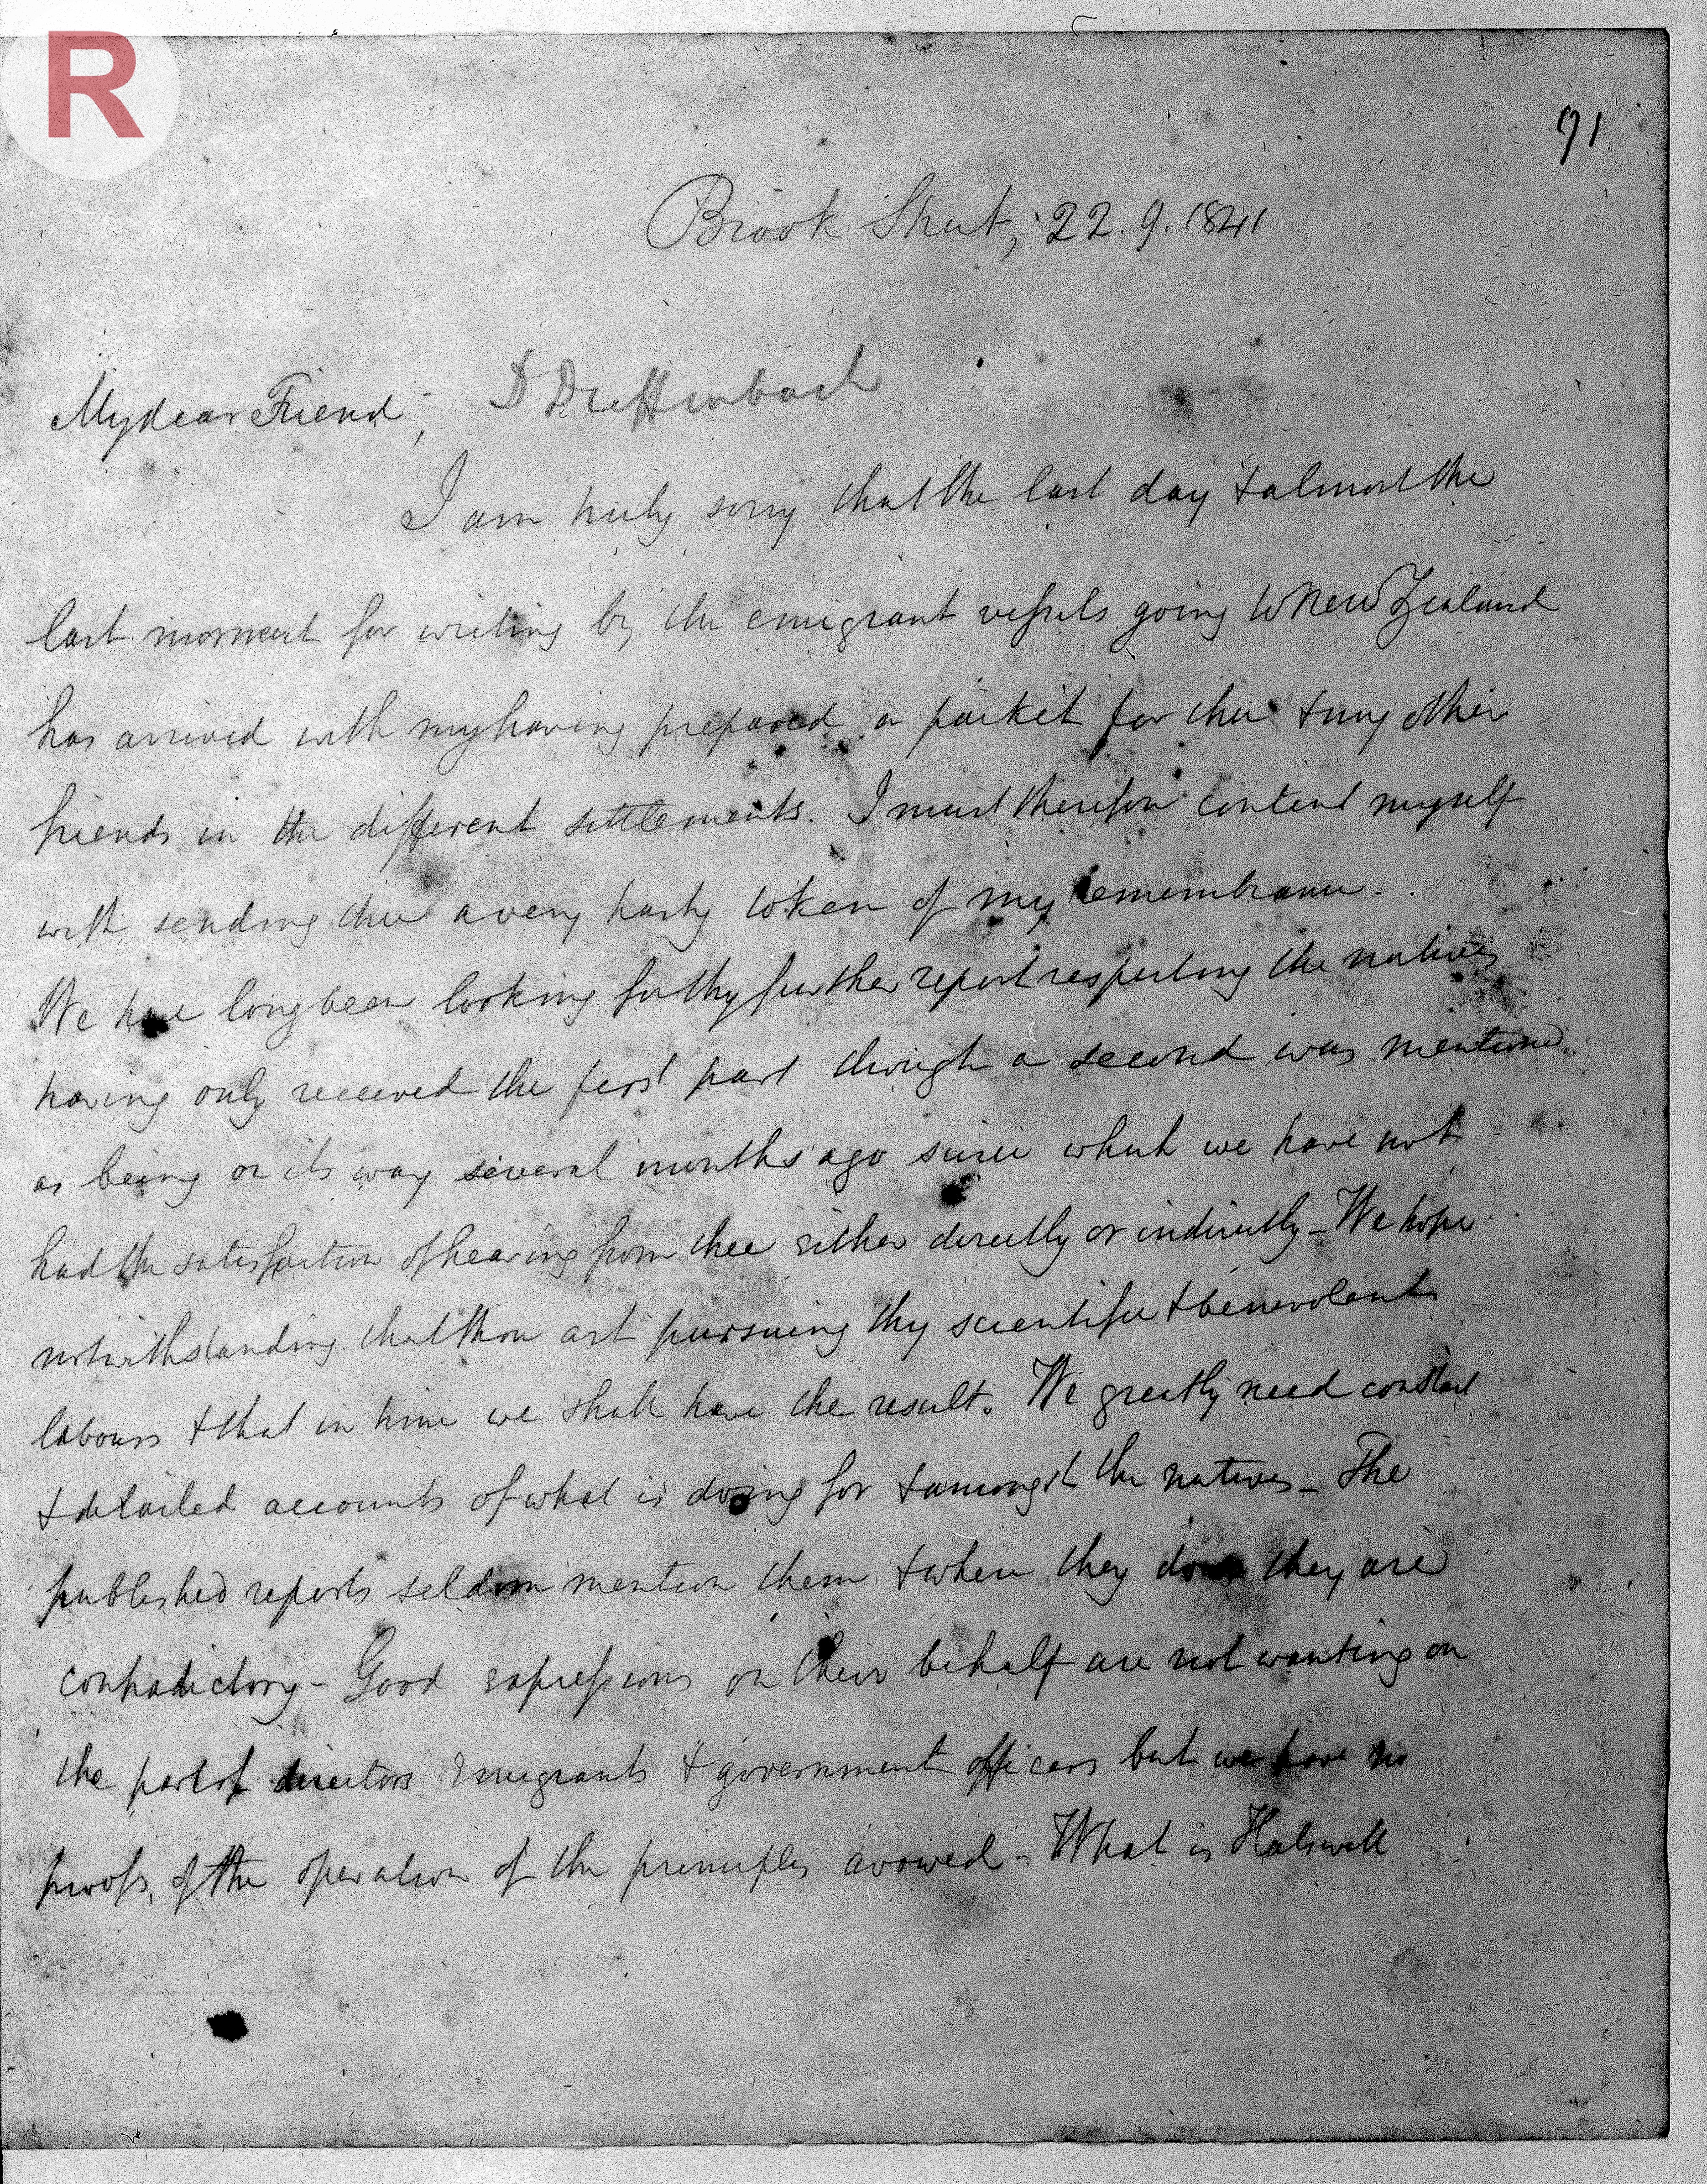 R
91
Brook Street, 22. 9. 1841
My dear Friend, D Dieffenbach
I am truly sorry that the last day & almost the
last moment for writing by the emigrant vessels going to New Zealand
has arrived with my having prepared a packet for thee & my other
friends in the different settlements. I must therefore content myself
with sending thee a very hasty token of my remembrance.
We have long been looking for thy further report respecting the natives
having only received the first part though a second was mentioned
as being on its way several months ago since which we have not
had the satisfaction of hearing from thee either directly or indirectly - We hope
notwithstanding that thou art pursuing thy scientific & benevolent
labours & that in time we shall have the result. We greatly need constant
& detailed accounts of what is doing for & amongst the natives - The
published reports seldom mention them & when they do they are
contradictory - Good expressions on their behalf are not wanting on
the part of directors Emigrants & government officers but we have no
proofs, of the operation of the principles avowed - What is Halswell